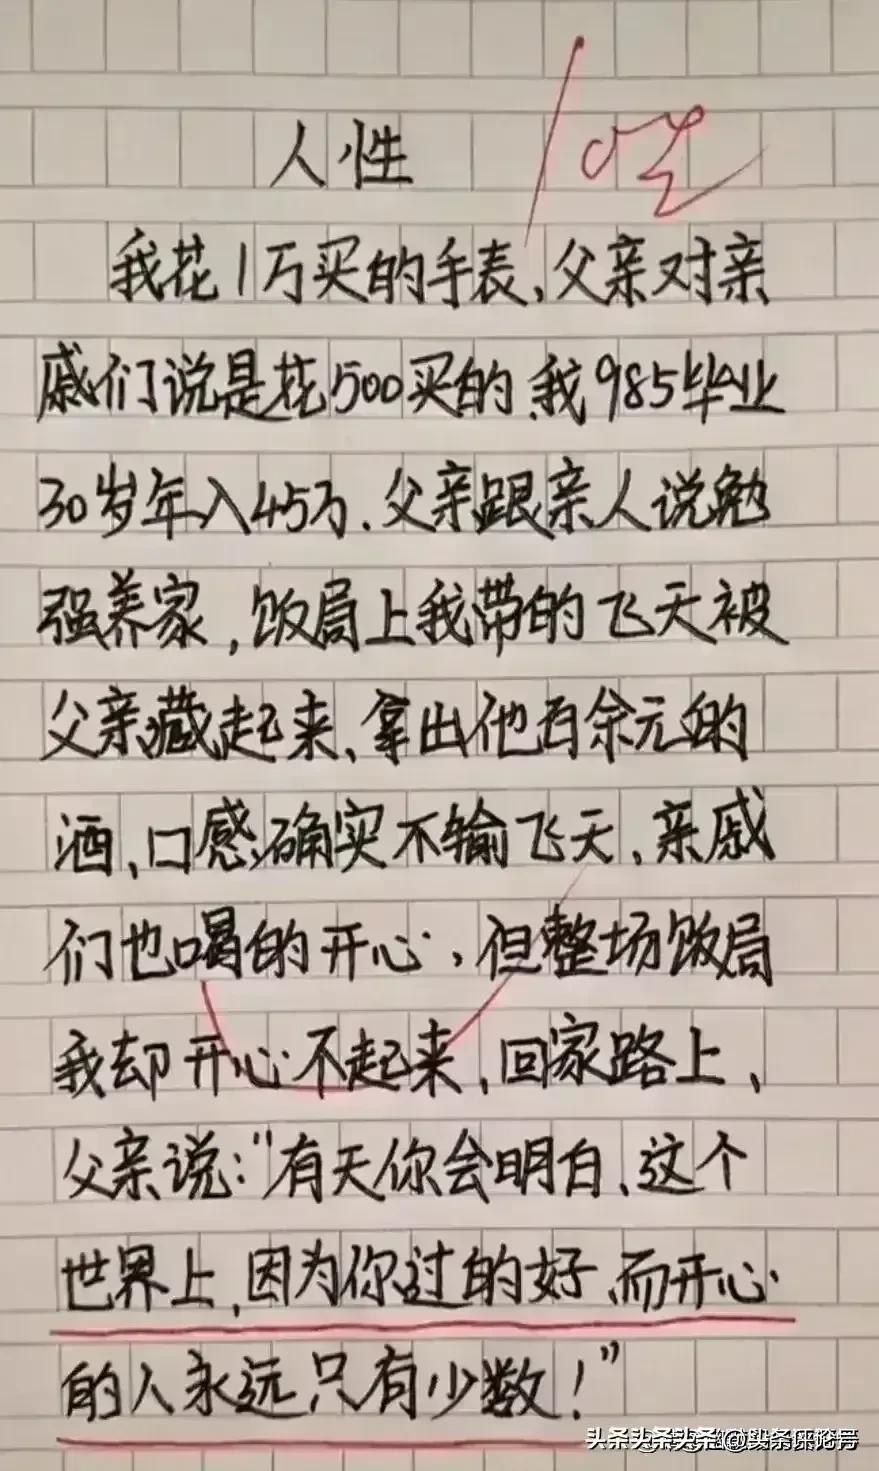 人性
我花1万买的手表、父亲对亲
戚们说是花500买的、我985毕业
30岁年入45万、父亲跟亲人说勉
强养家，饭局上我带的飞天被
父亲藏起来、拿出他百余元的
酒、口感确实不输飞天、亲戚
们也喝的开心、但整场饭局
我却开心不起来、回家路上、
父亲说："有天你会明白、这个
世界上、因为你过的好、而开心
的人永远只有少数！"